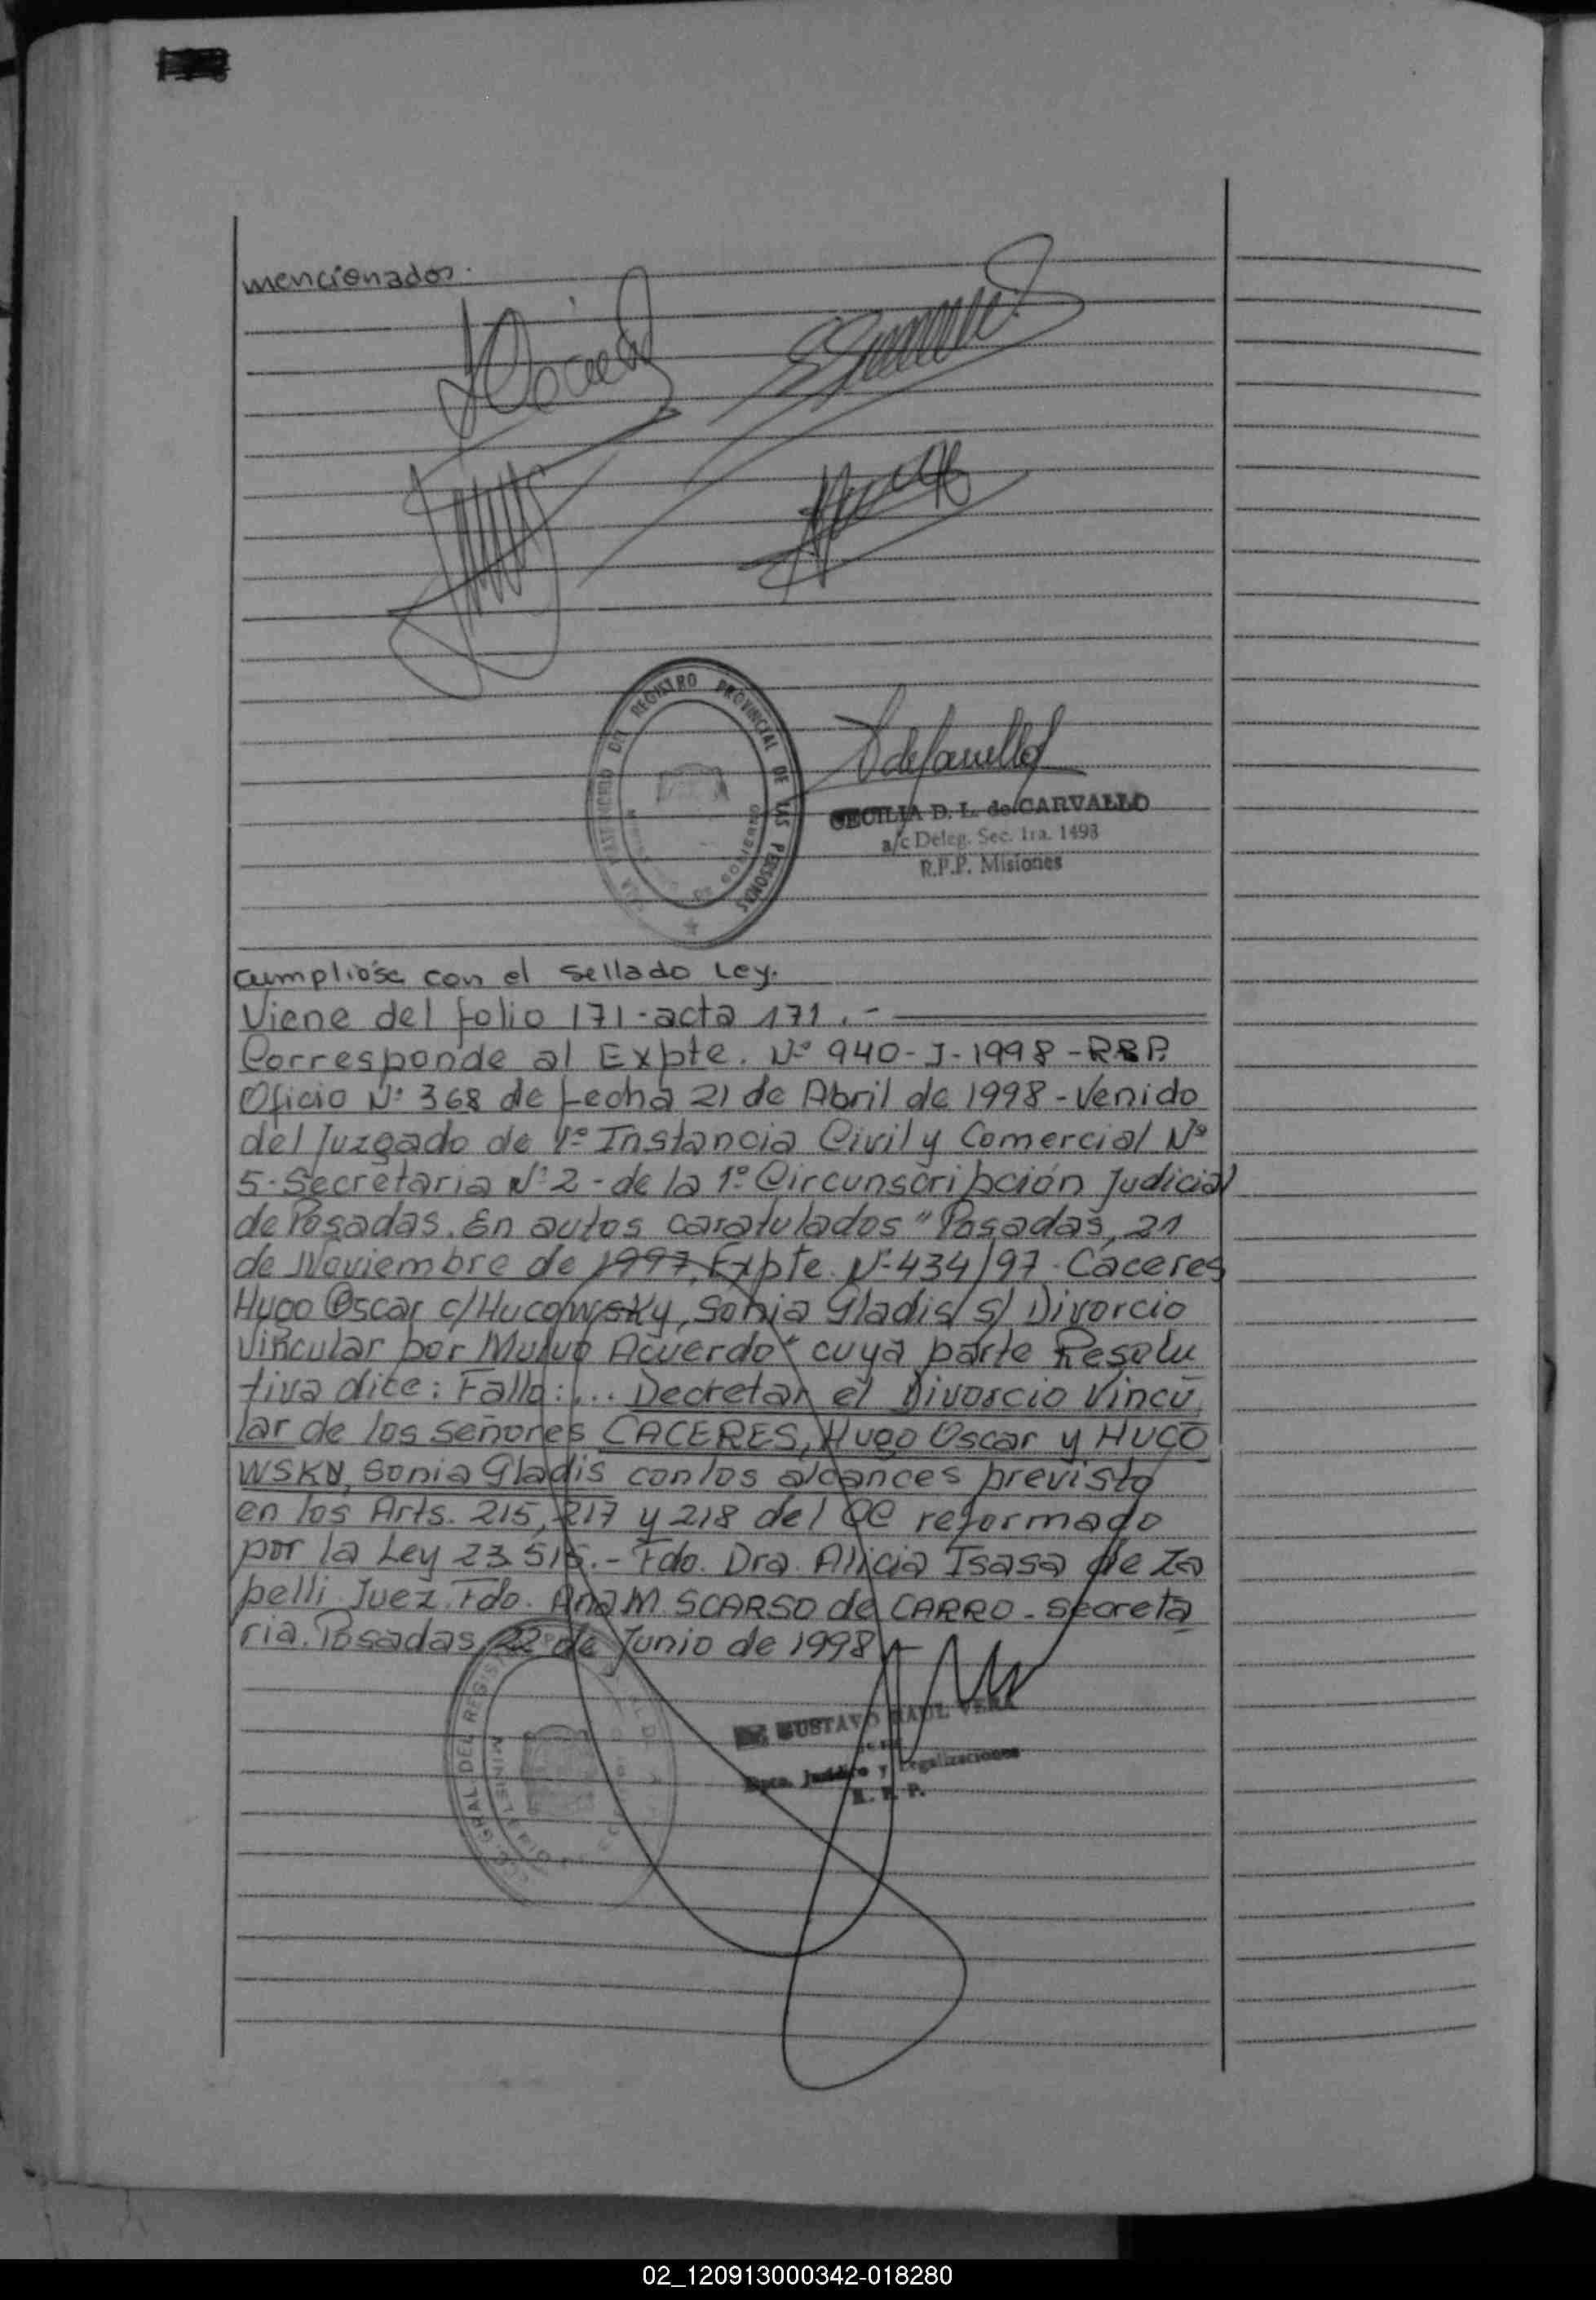 mencionados.
REGISTRO PROVINCIAL DE LAS PERSONAS
CECILIA D. L. de CARVALLO
a/c Deleg. Sec. 1ra. 1493
R.P.P. Misiones
Cumplióse con el sellado Ley.
Viene del folio 171-acta 171.-
Corresponde al Expte. Nº 940-J-1998-RRP.
Oficio Nº 368 de fecha 21 de Abril de 1998-Venido
del Juzgado de 1º Instancia Civil y Comercial Nº
5-Secretaria Nº 2-de la 1º Circunscripción Judicial
de Posadas. En autos caratulados "Posadas, 21
de Noviembre de 1997, Expte. Nº 434/97-Caceres
Hugo Oscar c/Hucowsky, Sonia Gladis s/ Divorcio
Vincular por Mutuo Acuerdo" cuya parte Resolu
tiva dice: Fallo:... Decretar el Divorcio Vincu
lar de los señores CACERES, Hugo Oscar y HUCO
WSKY, Sonia Gladis con los alcances previsto
en los Arts. 215, 217 y 218 del CC reformado
por la Ley 23.515.- Fdo. Dra. Alicia Isasa de Za
pelli Juez. Fdo. Ana M. SCARSO de CARRO-Secreta
ria. Posadas, 22 de Junio de 1998
GUSTAVO RAUL VERA
Dpto. Jurídico y Legalizaciones
R. P. P.
GRAL. DEL REGIS
MINISTERIO
02_120913000342-018280